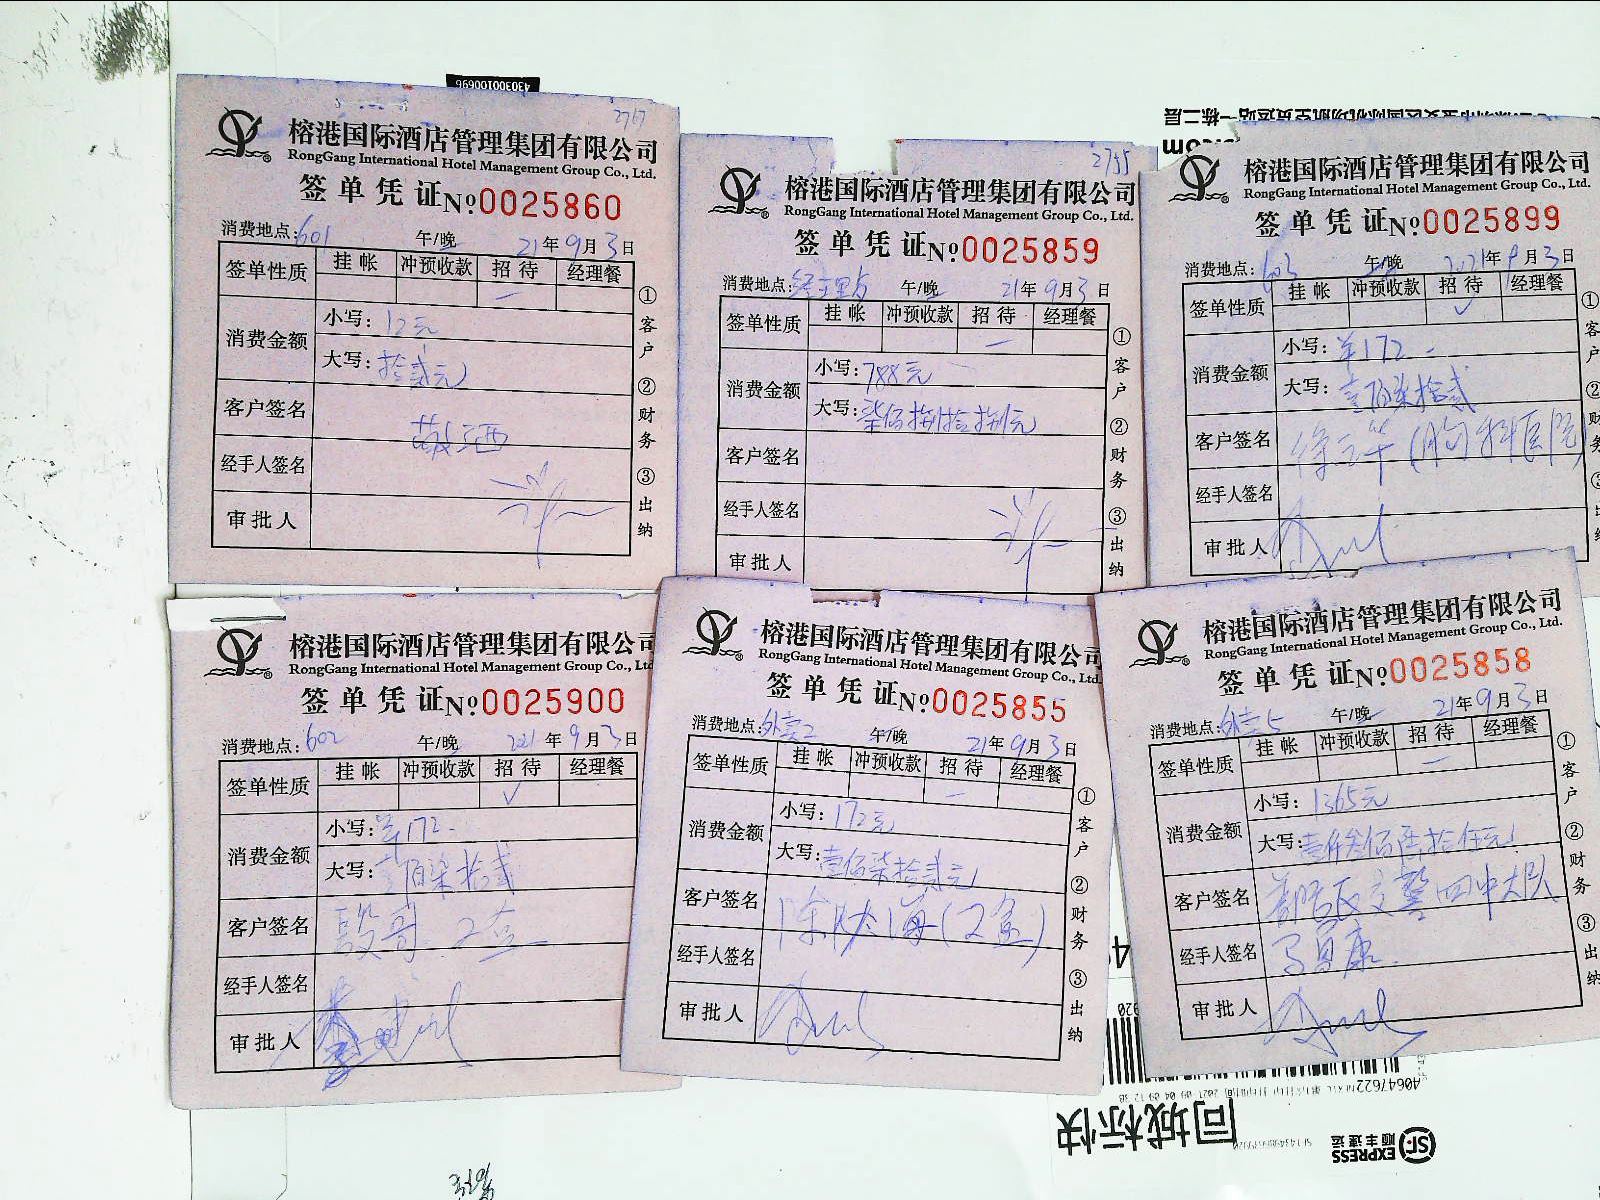 969001000604
2767
榕港国际酒店管理集团有限公司
RongGang International Hotel Management Group Co., Ltd.
签单凭证 №0025860
消费地点:601 午/晚 21年9月3日
签单性质 挂帐 冲预收款 招待 经理餐
消费金额 小写:12元
大写:拾贰元
客户签名
经手人签名
审批人
①客户 ②财务 ③出纳
2755
榕港国际酒店管理集团有限公司
RongGang International Hotel Management Group Co., Ltd.
签单凭证 №0025859
消费地点: 午/晚 21年9月3日
签单性质 挂帐 冲预收款 招待 经理餐
消费金额 小写:788元
大写:柒佰捌拾捌元
客户签名
经手人签名
审批人
①客户 ②财务 ③出纳
榕港国际酒店管理集团有限公司
RongGang International Hotel Management Group Co., Ltd.
签单凭证 №0025899
消费地点:603 午/晚 2021年9月3日
签单性质 挂帐 冲预收款 招待 ✓ 经理餐
消费金额 小写:¥172-
大写:壹佰柒拾贰
客户签名 (胸科医院)
经手人签名
审批人
①客户 ②财务
榕港国际酒店管理集团有限公司
RongGang International Hotel Management Group Co., Ltd
签单凭证 №0025900
消费地点:602 午/晚 2021年9月3日
签单性质 挂帐 冲预收款 招待 ✓ 经理餐
消费金额 小写:¥172-
大写:壹佰柒拾贰
客户签名 殷哥
经手人签名
审批人
榕港国际酒店管理集团有限公司
RongGang International Hotel Management Group Co., Ltd.
签单凭证 №0025855
消费地点:外卖2 午/晚 21年9月3日
签单性质 挂帐 冲预收款 招待 经理餐
消费金额 小写:172元
大写:壹佰柒拾贰元
客户签名
经手人签名
审批人
①客户 ②财务 ③出纳
榕港国际酒店管理集团有限公司
RongGang International Hotel Management Group Co., Ltd.
签单凭证 №0025858
消费地点:外卖5 午/晚 21年9月3日
签单性质 挂帐 冲预收款 招待 经理餐
消费金额 小写:1365元
大写:壹仟叁佰陆拾伍元
客户签名 交警四中大队
经手人签名
审批人
①客户 ②财务 ③出纳
A06477622
同城标快
SF EXPRESS
顺丰速运